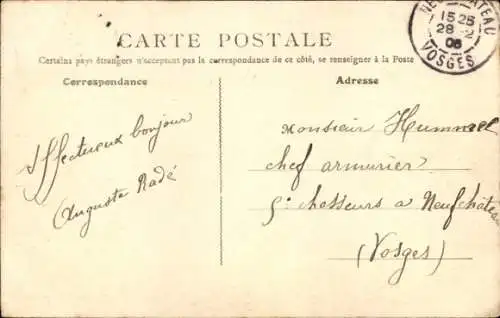 CARTE POSTALE
Certains pays étrangers n'acceptent pas la correspondance de ce côté, se renseigner à la Poste
Correspondance
Adresse
NEUFCHATEAU
15 25
28 -2
06
VOSGES
Affectueux bonjour
Auguste Radé
Monsieur Hummel
chef armurier
5e chasseurs a Neufchâteau
(Vosges)